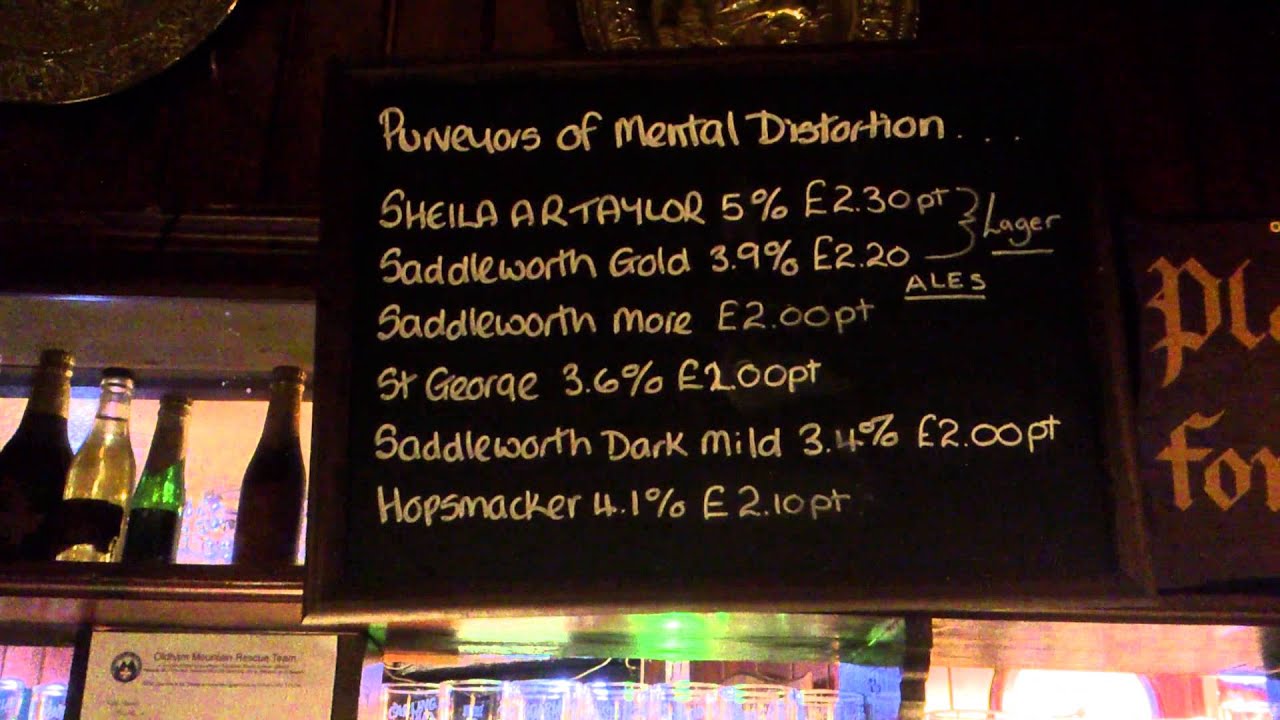 Purveyors of Mental Distortion . . .
SHEILA ARTAYLOR 5% £2.30pt
Lager
Saddleworth Gold 3.9% £2.20
ALES
Saddleworth More £2.00pt
St George 3.6% £2.00pt
Saddleworth Dark Mild 3.4% £2.00pt
Hopsmacker 4.1% £2.10pt
Pl
for
Oldham Mountain Rescue Team